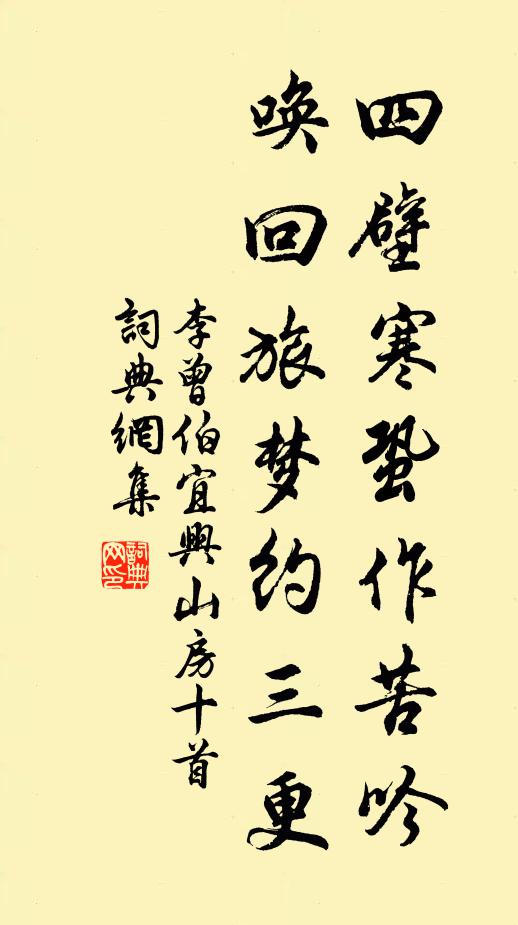 四壁寒蛩作苦吟
唤回旅梦约三更
李曾伯宜興山房十首
詞典網集
詞典网印